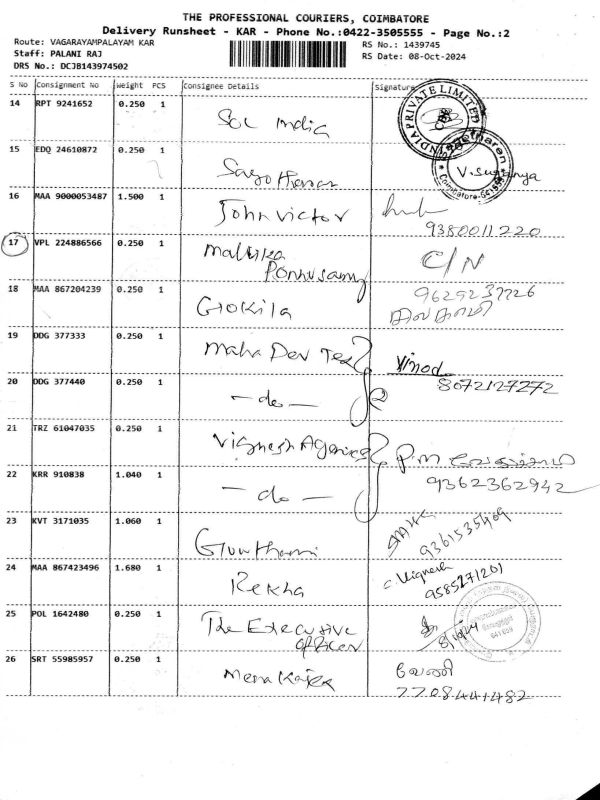 THE PROFESSIONAL COURIERS, COIMBATORE
Delivery Runsheet - KAR - Phone No.:0422-3505555 - Page No.:2
Route: VAGARAYAMPALAYAM KAR
RS No.: 1439745
Staff: PALANI RAJ
RS Date: 08-Oct-2024
DRS No.: DCJB143974502
S No Consignment No Weight PCS Consignee Details Signature
14 RPT 9241652 0.250 1 Sol India
INDIA PRIVATE LIMITED
15 EDQ 24610872 0.250 1
V. Suganya
16 MAA 9000053487 1.500 1 John Victor
9380011220
17 VPL 224886566 0.250 1 Mallika Ponnusamy C/N
18 MAA 867204239 0.250 1 Gokila
9629237726
19 DDG 377333 0.250 1 Maha Dev Tex Vinod
20 DDG 377440 0.250 1 - do - 8072127272
21 TRZ 61047035 0.250 1 Vignesh Agencies P.M
22 KRR 910838 1.040 1 - do - 9362362942
23 KVT 3171035 1.060 1 Gowthami
9361535409
24 MAA 867423496 1.680 1 Rekha C. Vignesh
9585271201
25 POL 1642480 0.250 1 The Executive Officer
26 SRT 55985957 0.250 1 Mena Kajek வேணி
7708441482